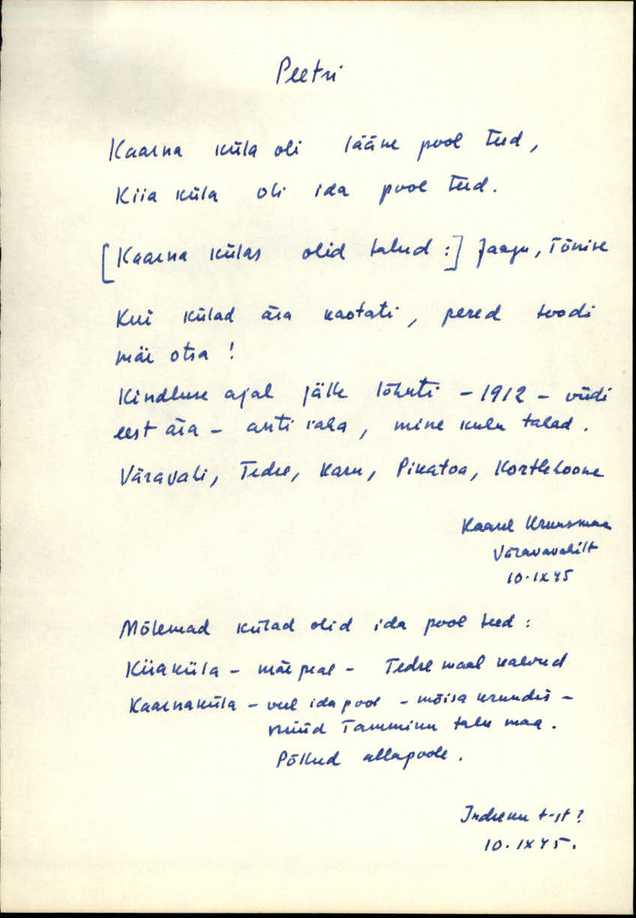 Peetri
Kaarna küla oli lääne pool teed,
Kiia küla oli ida pool teed.
[Kaarna külas olid talud:] Jaagu, Tõnise
Kui külad ära kaotati, pered toodi
mäe otsa!
Kindluse ajal jälle lõhuti - 1912 - viidi
eest ära - anti raha, mine kuhu tahad.
Väravali, Tedre, Karu, Pikatoa, Kortleloone
Kaarel Kruusmaa
Väravavalilt
10.IX 45
Mõlemad külad olid ida pool teed:
Kiiaküla - mäe peal - Tedre maal kaevud
Kaarnaküla - veel ida pool - mõisa krundis -
nüüd Tammiku talu maa.
Põllud allapoole.
Indreku t-st?
10.IX 45.